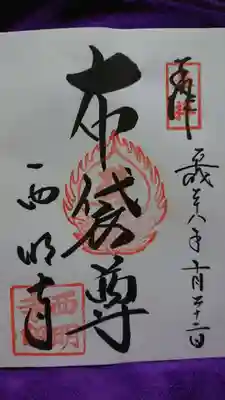 奉拝
平成二十八年十一月二十二日
布袋尊
西明寺
西明
寺印